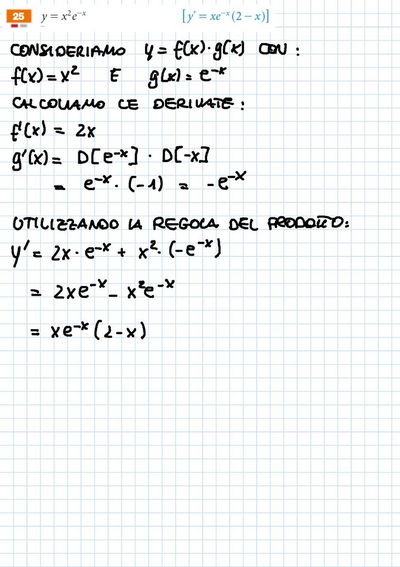 25 y = x²e⁻ˣ [y' = xe⁻ˣ(2 − x)]
CONSIDERIAMO y = f(x)·g(x) CON:
f(x) = x² E g(x) = e⁻ˣ
CALCOLIAMO LE DERIVATE:
f'(x) = 2x
g'(x) = D[e⁻ˣ] · D[-x]
= e⁻ˣ · (-1) = -e⁻ˣ
UTILIZZANDO LA REGOLA DEL PRODOTTO:
y' = 2x · e⁻ˣ + x² · (-e⁻ˣ)
= 2xe⁻ˣ - x²e⁻ˣ
= xe⁻ˣ(2-x)